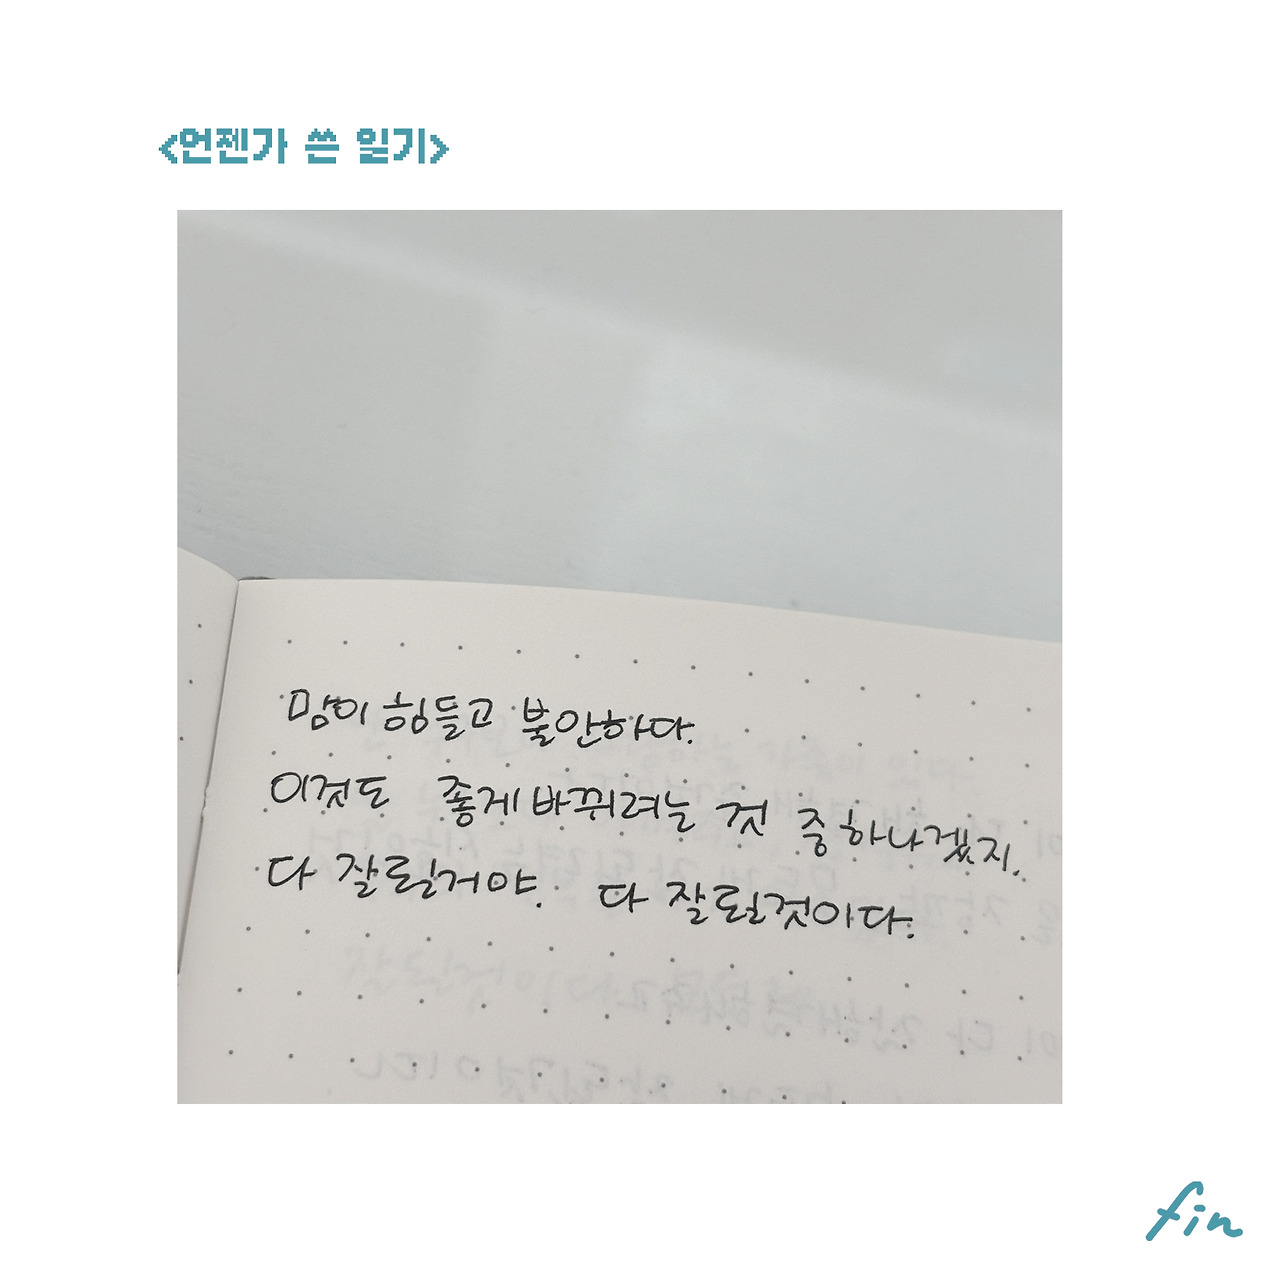 <언젠가 쓴 일기>
맘이 힘들고 불안하다.
이것도 좋게 바뀌려는 것 중 하나겠지.
다 잘될거야. 다 잘될것이다.
fin